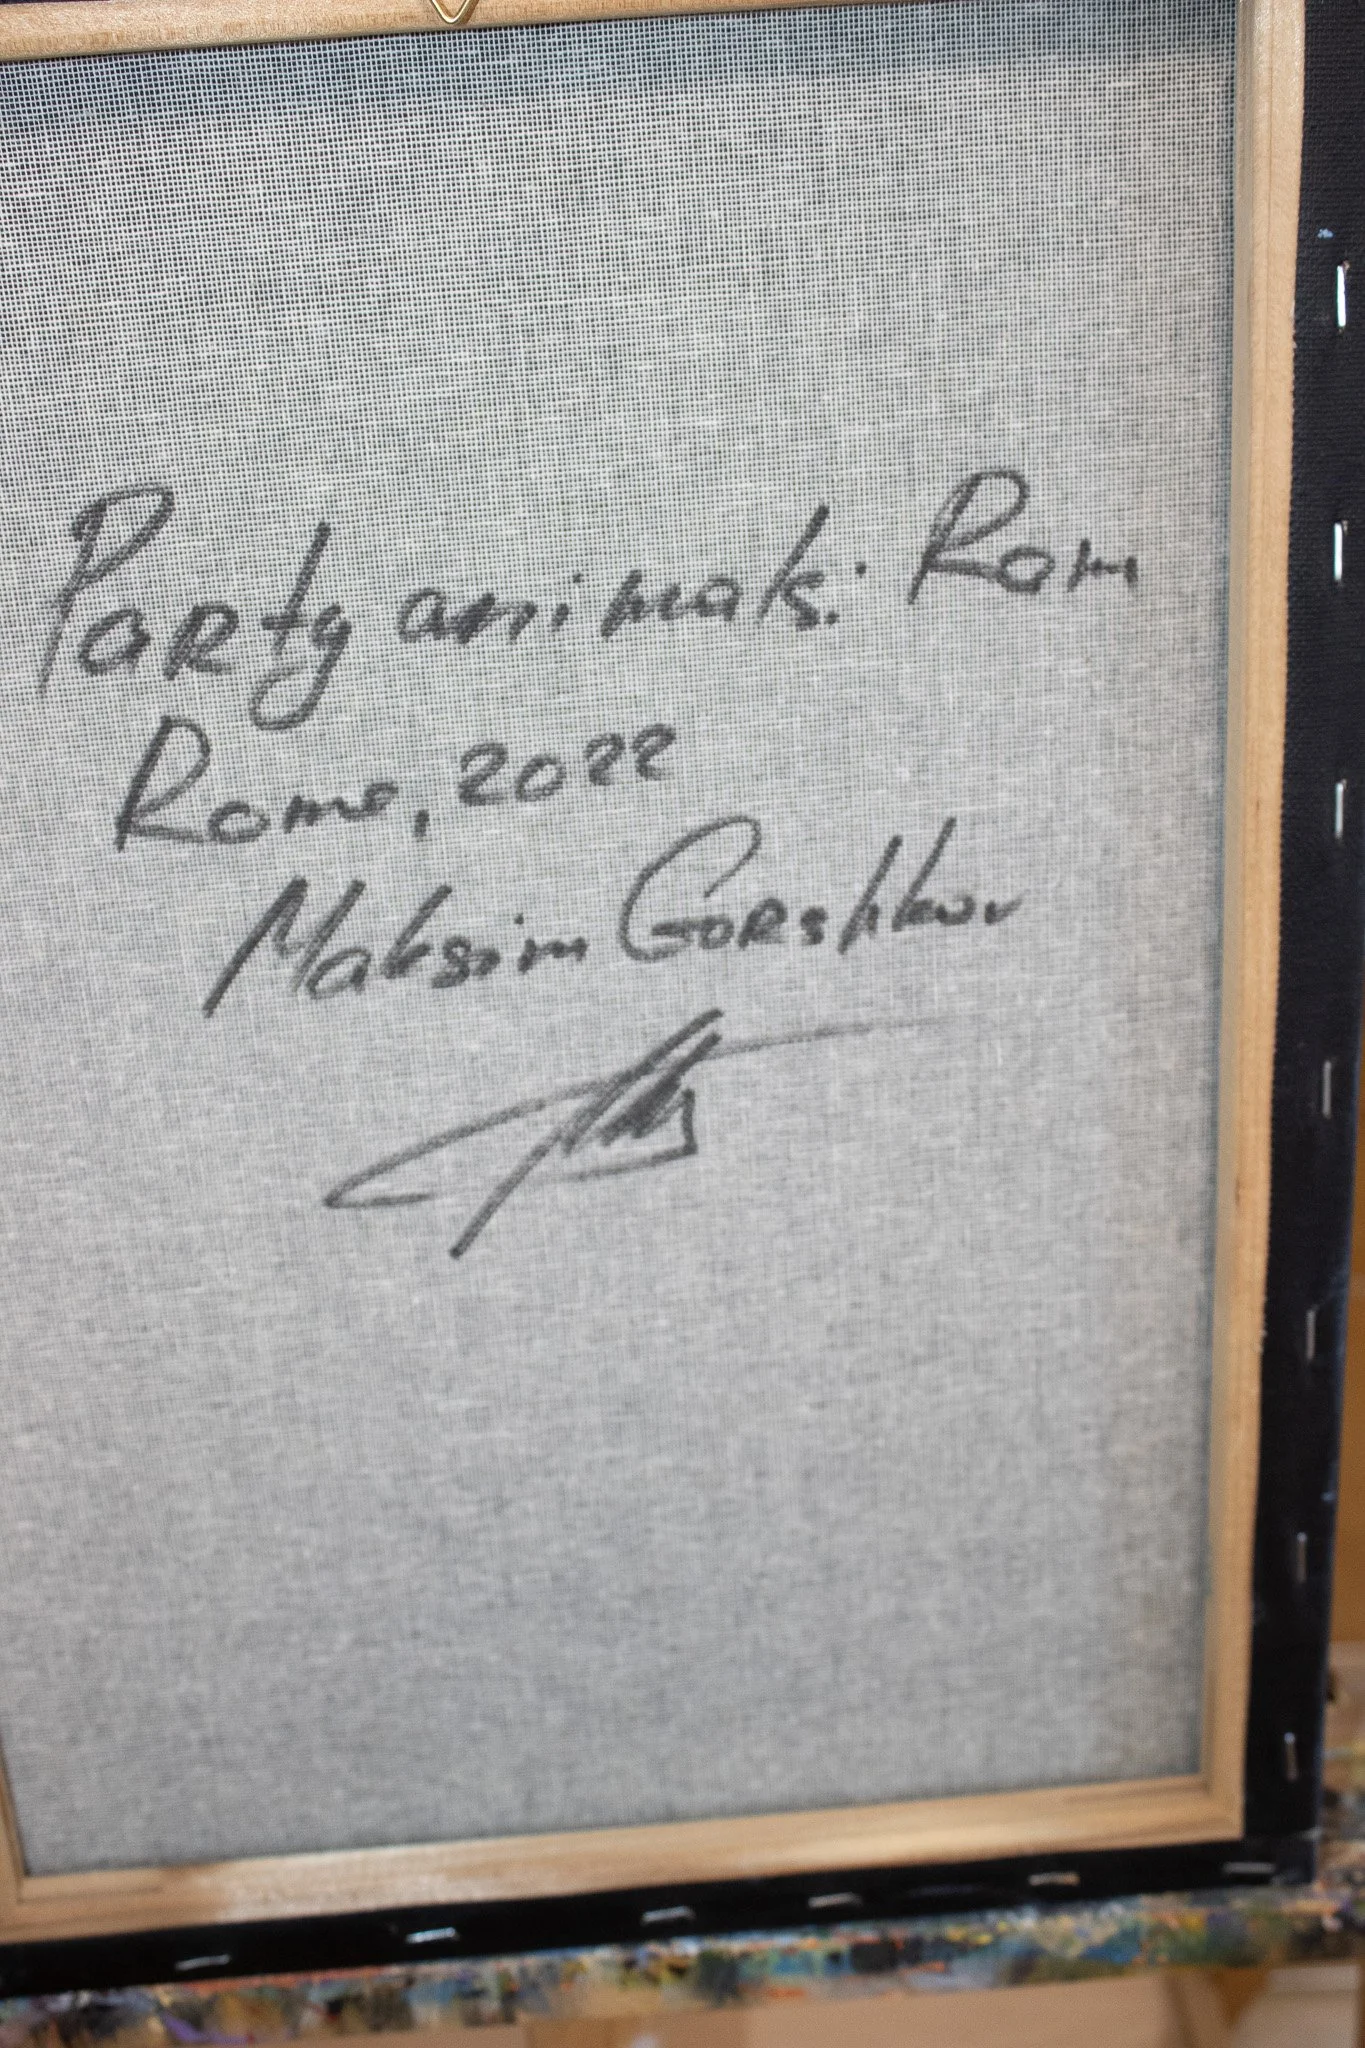 Party animals: Rom
Rome, 2022
Maksim Gorshkov